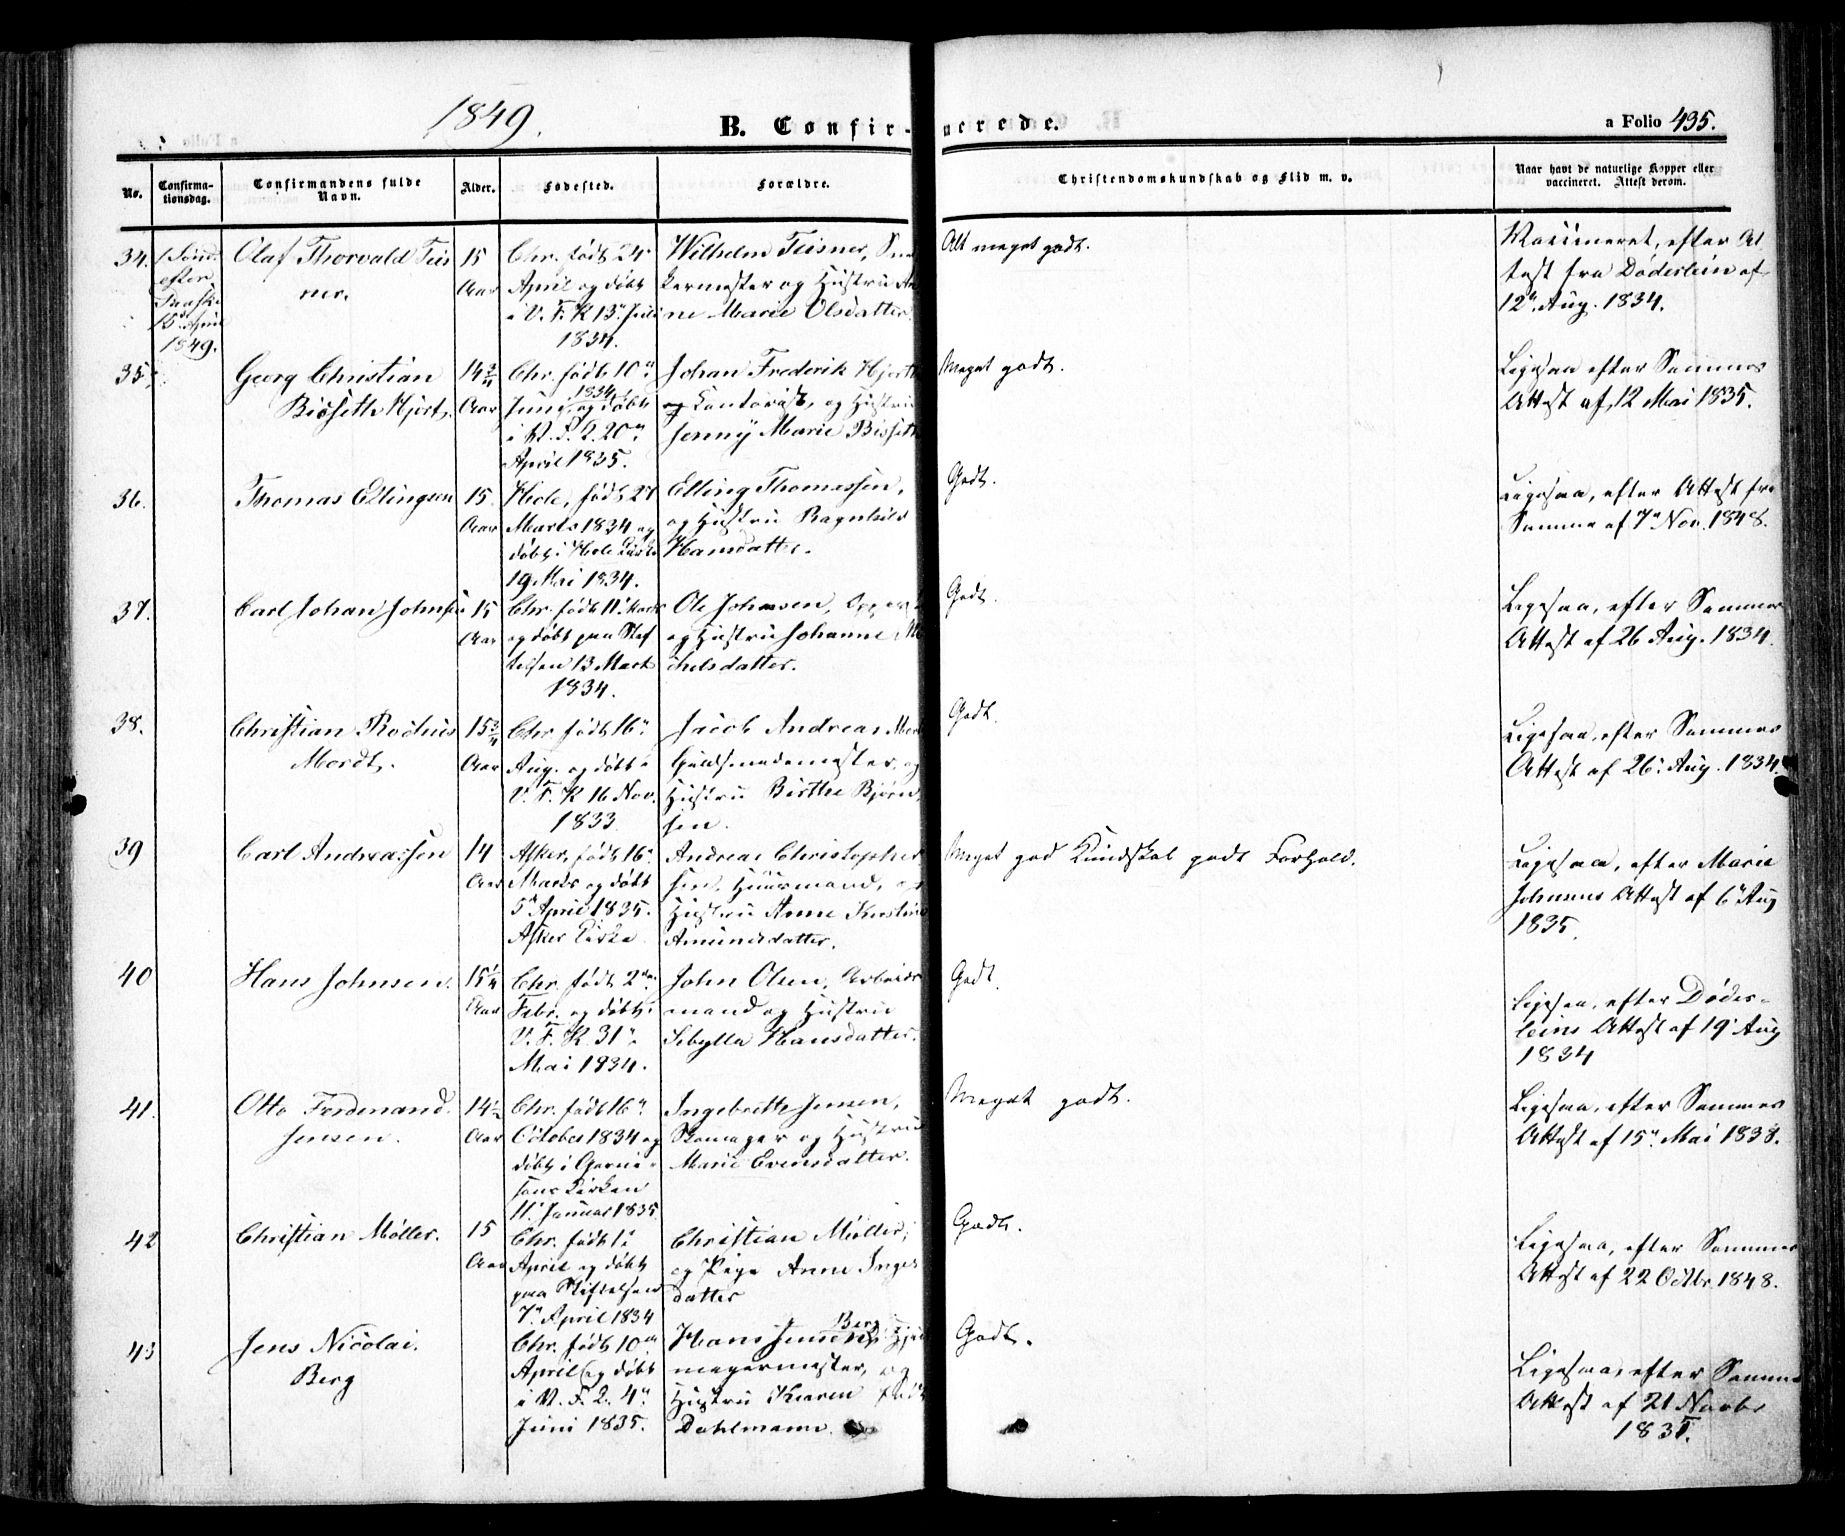 1849.
B. Confir-merede.
a Folio 435.
No.
Confirma-
tionsdag.
Confirmandens fulde
Navn.
Alder.
Fødested.
Forældre.
Christendomskundskab og Flid m. v.
Naar havt de naturlige Kopper eller
vaccineret. Attest derom.
34.
1 Sønd.
efter
Paaske
15 April
1849.
Olaf Thorvald Teis
ner.
15
Aar
Chr. født 24
April og døbt
i V. F. K 13 Juli
1834.
Wilhelm Teisner, Sned
kermester og Hustru An
ne Marie Olsdatter.
Alt meget godt.
Vaccineret, efter At
test fra Døderlein af
12 Aug. 1834.
35.
Georg Christian
Bisseth Hjort.
14 3/4
Aar
Chr. født 10
Juny 1834 og døbt
i V. F. K. 20
April 1835.
Johan Frederik Hjorth
og Contorist, og Hustru
Jenny Marie Bisseth
Meget godt.
Ligesaa efter Sammes
Attest af 12 Mai 1835.
36.
Thomas Ellingsen
15.
Aar
Hole, født 27
Marts 1834 og
døbt i Hole Kirke
19 Mai 1834.
Elling Thomassen,
og Hustru Ragnhild
Hansdatter.
Godt.
Ligesaa, efter Attest fra
Samme af 7 Nov. 1848.
37.
Carl Johan Johnsen
15
Aar
Chr. født 11 Marts
og døbt paa Stif
telsen 13 Marts
1834.
Ole Johnsen,
og Hustru Johanne Mi
chelsdatter.
Godt.
Ligesaa, efter Sammes
Attest af 26 Aug. 1834.
38.
Christian Rochus
Mordt.
15 3/4
Aar
Chr. født 16
Aug. og døbt i
V. F. K 16 Nov.
1833.
Jacob Andreas Mordt
Guldsmedemester, og
Hustru Birthe Bjørn
sen.
Godt.
Ligesaa, efter Sammes
Attest af 26 Aug. 1834.
39
Carl Andreassen
14
Aar
Asker, født 16
Marts og døbt
5 April 1835.
Asker Kirke.
Andreas Christopher
sen, Huusmand, og
Hustru Anne Kirstine
Amundsdatter.
Meget god Kundskab godt Forhold.
Ligesaa, efter Marie
Johnsens Attest af 6 Aug
1835.
40
Hans Johnsen.
15 1/4
Aar
Chr. født 2
Febr. og døbt i
V. F. K. 31
Mai 1834.
John Olsen, Arbeids
mand og Hustru
Sibylla Hansdatter.
Godt.
Ligesaa, efter Døder-
leins Attest af 19 Aug
1834
41.
Otto Ferdinand
Jensen.
14 1/2
Aar
Chr. født 16
October 1834 og
døbt i Garni-
sons Kirken
11 Januar 1835.
Ingebrette Jensen,
Skomager og Hustru
Marie Evensdatter.
Meget godt.
Ligesaa, efter Sammes
Attest af 15 Mai 1838.
42
Christian Møller.
15
Aar
Chr. født 1
April og døbt
paa Stiftelsen
7 April 1834
Christian Møller,
og Pige Anne Inger
datter
Godt.
Ligesaa, efter Sammes
Attest af 22 Octbr. 1848.
43
Jens Nicolai
Berg
Chr. født 10
April og døbt
i V. F. K. 4
Juni 1835.
Hans Jensen Berg, Hjul
magermester, og
Hustru Karen født
Dahlmann.
Godt.
Ligesaa, efter Sammes
Attest af 21 Novbr
1835.